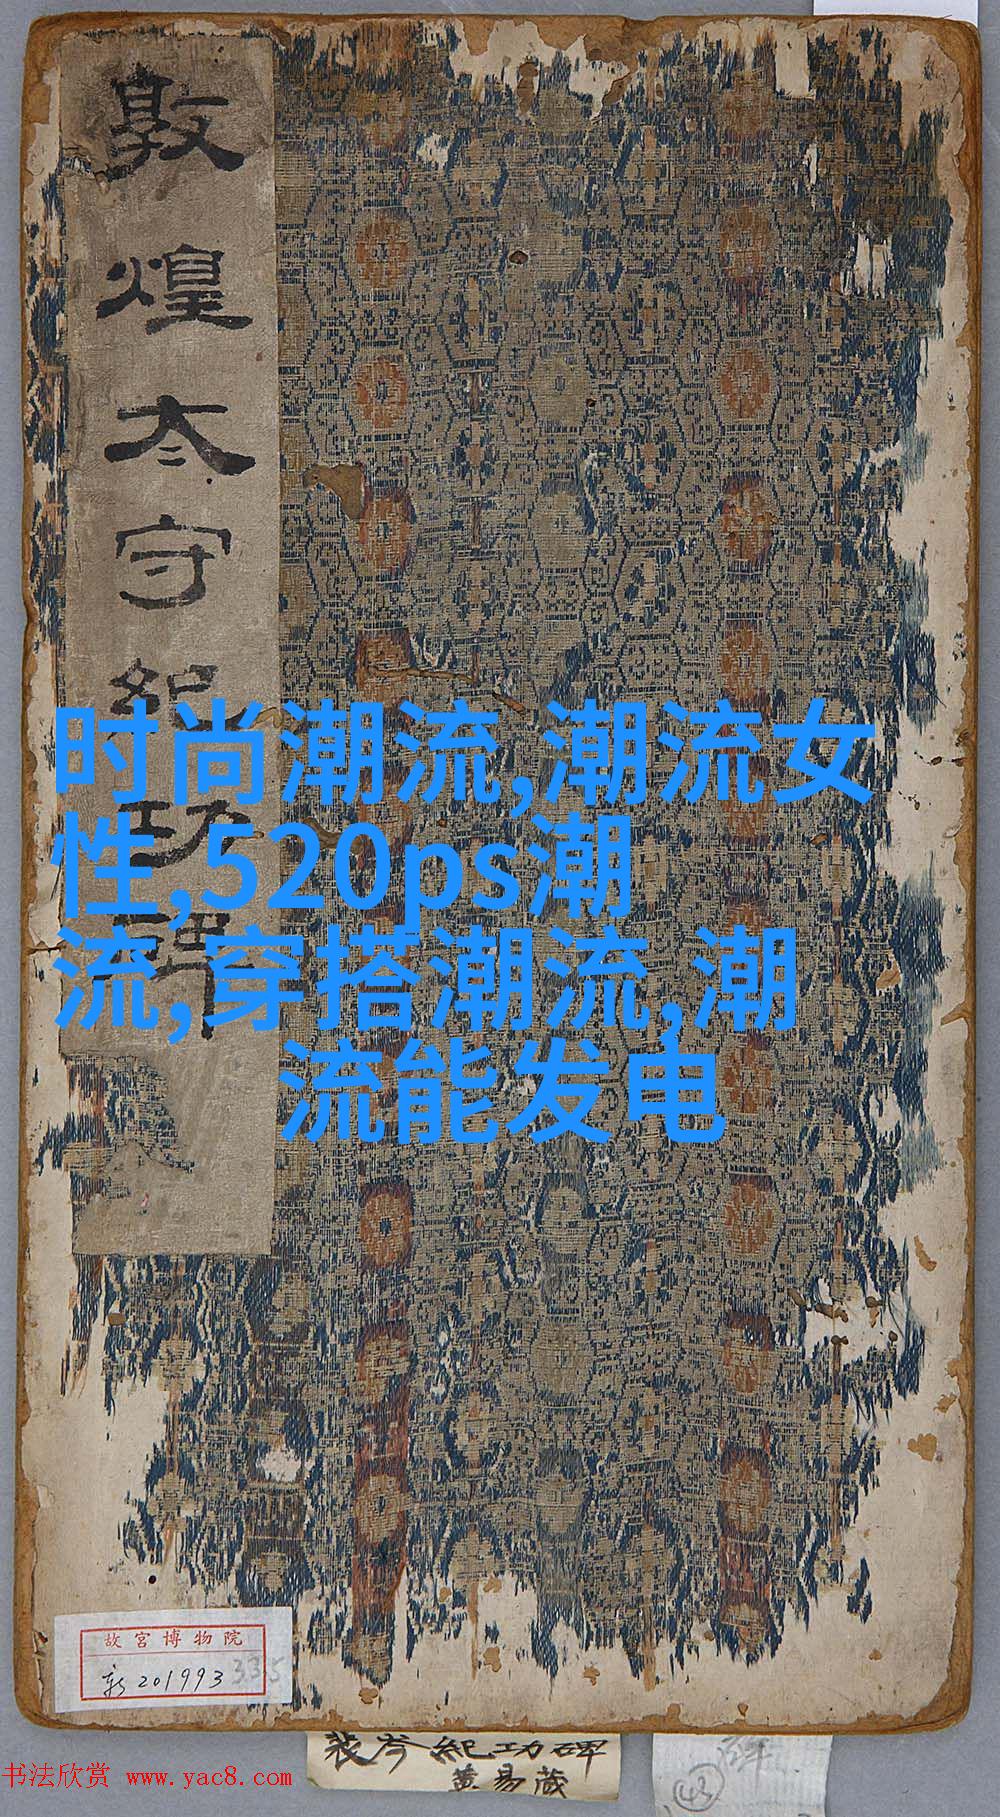 敦煌太守紀功碑
时尚潮流,潮流女
性,520ps潮
流,穿搭潮流,潮
流能发电
故宫博物院
新201993
335
裴岑紀功碑
黄易藏
43
书法欣赏 www.yac8.com